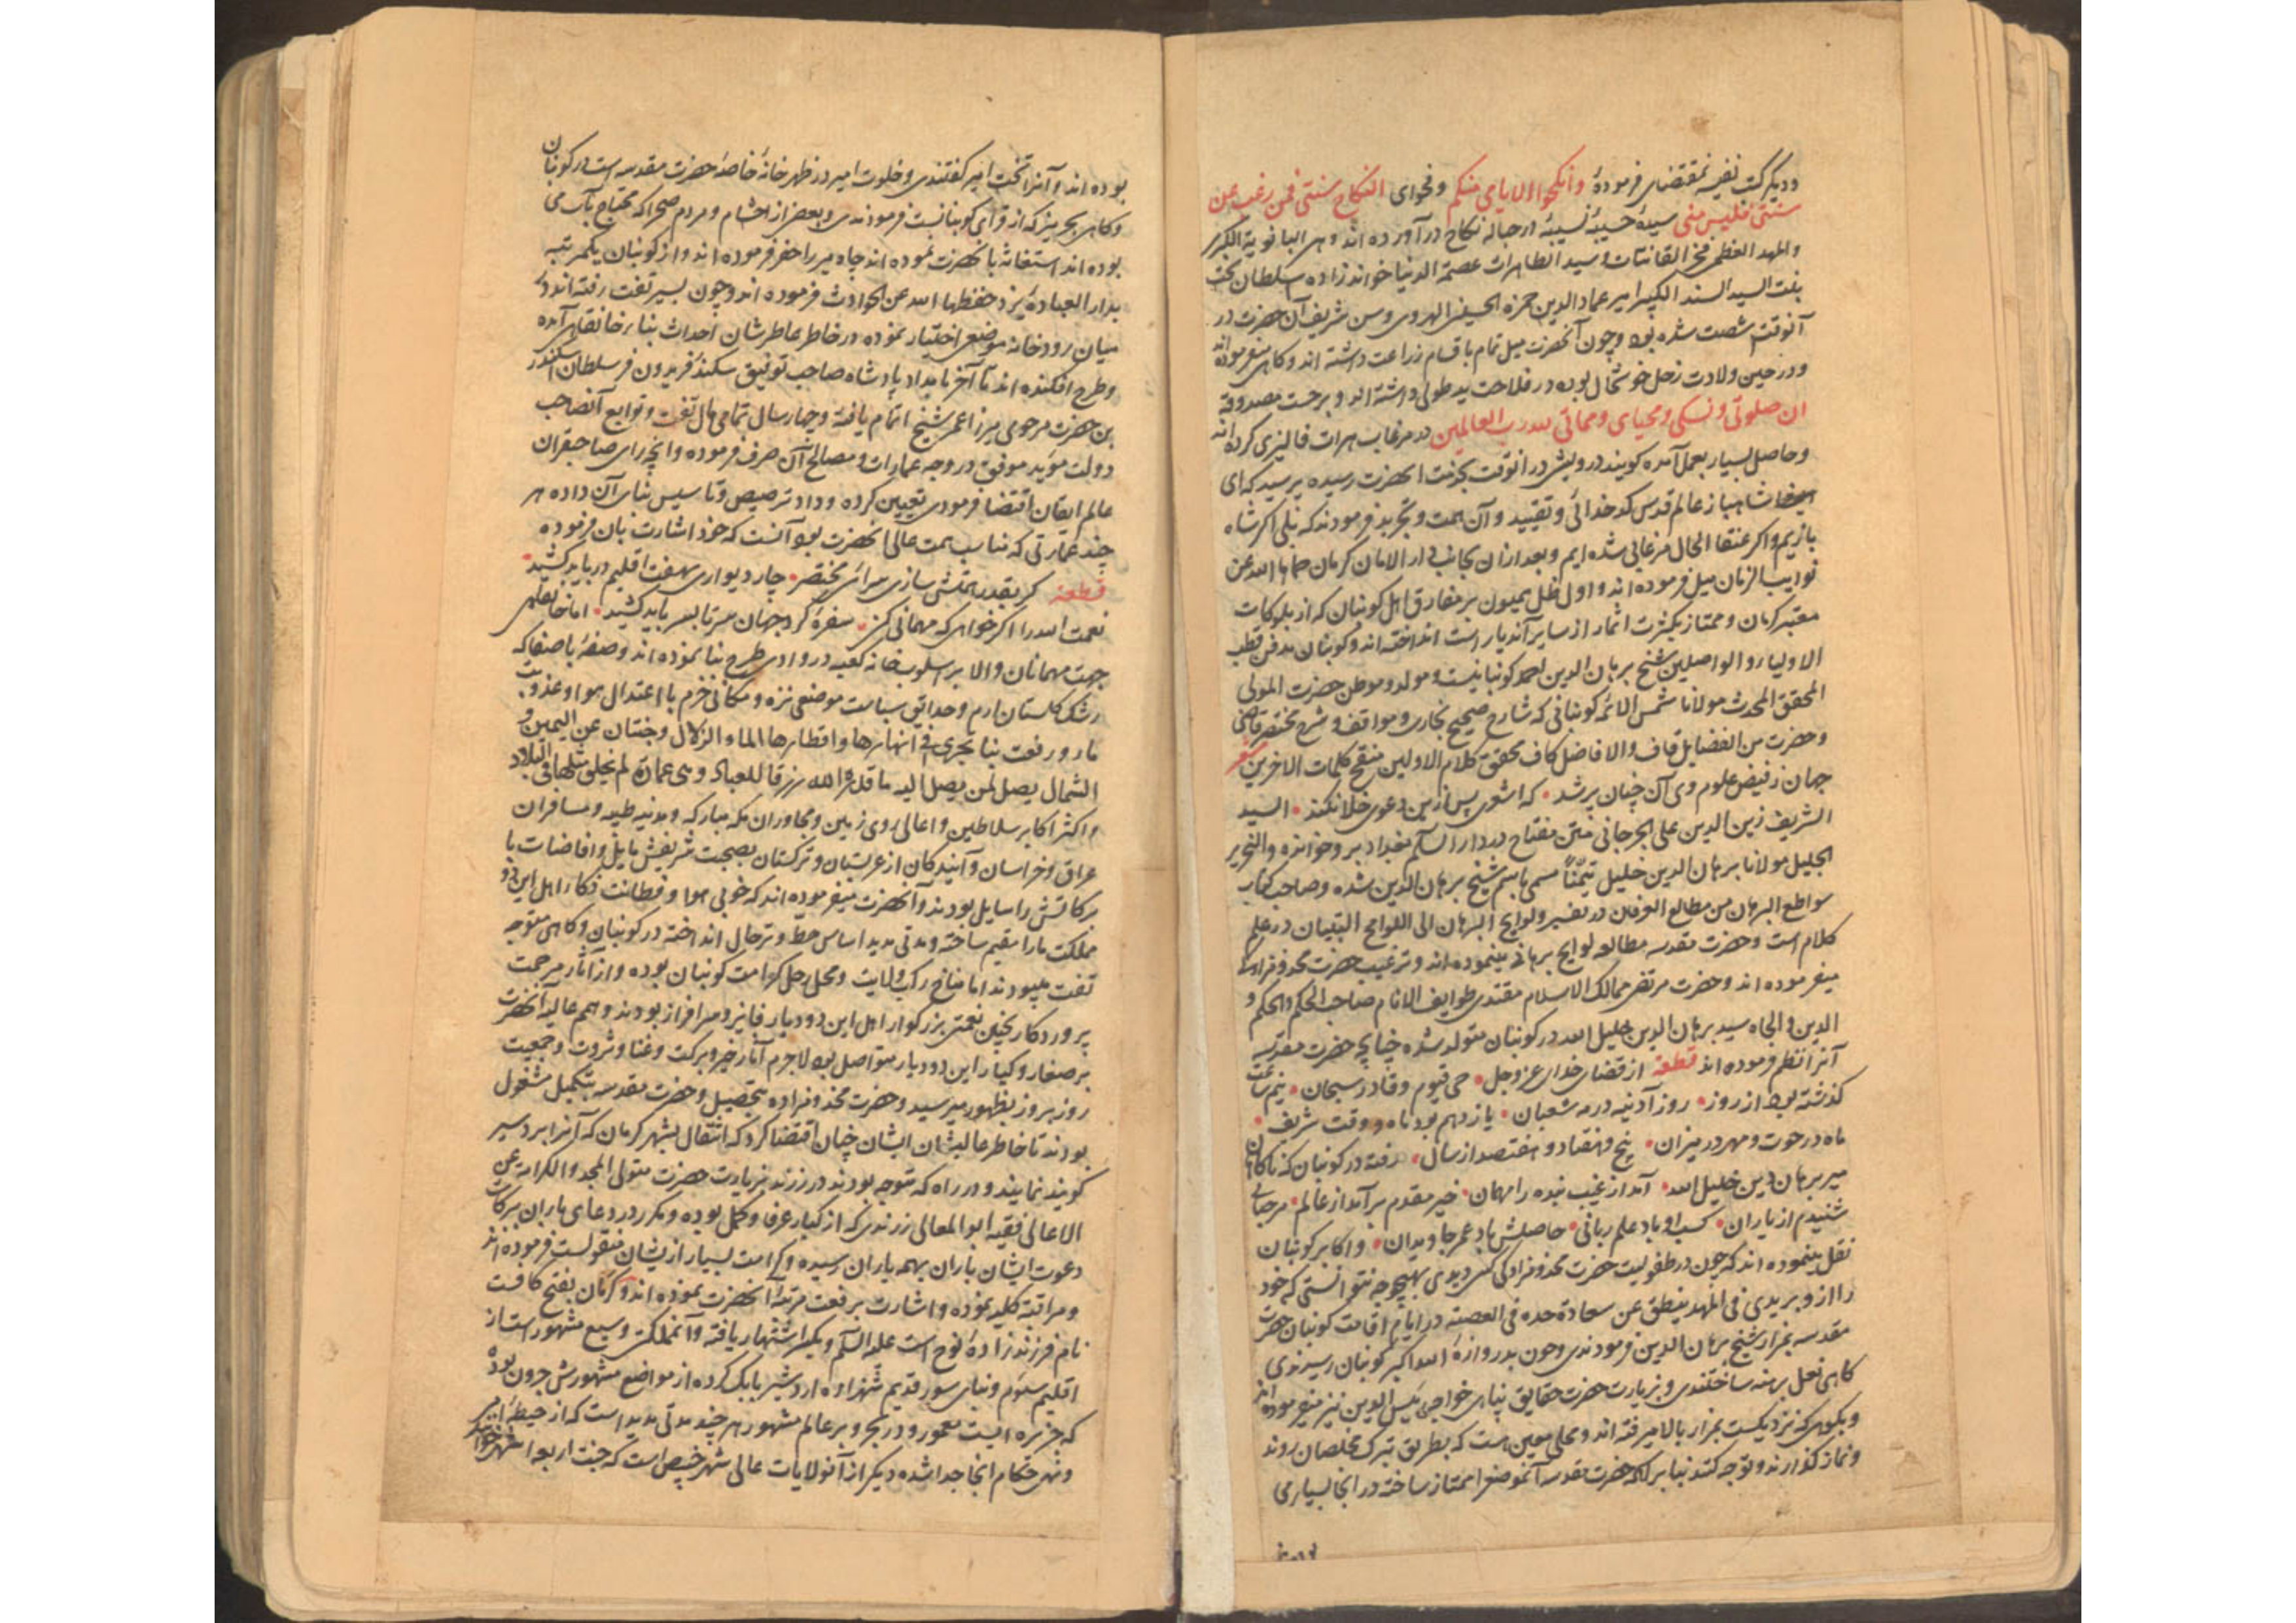 ودیگر کت نفیسه بمقتضای فرموده وانکحوا الایامی منکم وفحوای النکاح سنتی فمن رغب عن
سنتی فلیس منی سیدهٔ حسیبهٔ نسیبهٔ در حباله نکاح درآورده اند وهی البانویة الکبری
والمهد العظمی مفخر القانتات وسید الطاهرات عصمة الدنیا خواندزاده سلطان بخت
بنت السید السند الکبیر امیر عماد الدین حمزه الحسینی الهروی وسن شریف آن حضرت در
آنوقت شصت شده بود وچون آنحضرت میل تمام باقسام زراعت داشته اند وکاهی میفرموده اند
ودر حین ولادت زحل خوشحال بوده در فلاحت ید طولی داشته اند وبرحسب مصدوقه
ان صلوتی ونسکی ومحیای ومماتی لله رب العالمین در مرغاب هرات فالیزی کرده اند
وحاصل بسیار بعمل آمده کویند درویشی در آنوقت بخدمت آنحضرت رسیده پرسید که ای
شاهباز عالم قدس کدخدائی وتقیید وآن همت وتجرید فرمودند که بلی اکر شاه
بازیم واکر عنقا الحال مرغابی شده ایم وبعد ازان بجانب دار الامان کرمان حماها الله عن
نوایب الزمان میل فرموده اند واول ظل همیون بر مفارق اهل کوبنان که از بلوکات
معتبر کرمان وممتاز بکثرت اثمار از سایر آندیار است انداخته اند وکوبنان مدفن قطب
الاولیا والواصلین شیخ برهان الدین احمد کوبنانیست ومولد وموطن حضرت المولی
المحقق المحدث مولانا شمس الائمه کوبنانی که شارح صحیح بخاری ومواقف وشرح مختصر قاضی
وحضرت من الفضایل قاف والافاضل کاف محقق کلام الاولین منقح کلمات الاخرین شعر
جهان ز فیض علوم وی آن چنان پر شد که اشعری پس ازین دعوی خلا نکند السید
الشریف زین الدین علی الجرجانی متن مفتاح در دار السلام بغداد برو خوانده والنحریر
الجلیل مولانا برهان الدین خلیل تیمّناً مسمی باسم شیخ برهان الدین شده وصاحب کتاب
سواطع البرهان من مطالع العرفان در تفسیر ولوایح البرهان الی اللوامح التبیان در علم
کلام است وحضرت مقدسه مطالعه لوایح برهانی مینموده اند وترغیب حضرت مخدومزادکی
میفرموده اند وحضرت مرتضی ممالک الاسلام مقتدی طوایف الانام صاحب الحکم والحکم و
الدین والجاه سید برهان الدین خلیل الله در کوبنان متولد شده چنانچه حضرت مقدسه
آنرا نظم فرموده اند قطعه از قضای خدای عز وجل حی قیوم وقادر سبحان نیم ساعت
کذشته بود از روز روز آدینه در مه شعبان یازدهم بود ماه ووقت شریف
ماه در حوت ومهر در میزان پنج وهفتاد وهفتصد از سال رفته در کوبنان که ناکاهان
میر برهان دین خلیل الله آمد از غیب بنده را مهمان خیر مقدم برآمد از عالم مرحبا
شنیدم از یاران کسب او باد علم ربانی حاصلش باد عمر جاویدان واکابر کوبنان
نقل مینموده اند که چون در طفولیت حضرت مخدومزادکی کسی دیدی بهیچوجه نتوانستی که خود
را ازو بریدی فی المهد ینطق عن سعادة جده فی العصمه در ایام اقامت کوبنان حضرت
مقدسه بمزار شیخ برهان الدین فرمودندی وچون بدروازهٔ الله اکبر کوبنان رسیدندی
کاهی نعل برهنه ساختندی وبزیارت حضرت حقایق پناهی خواجه الدین نیز میفرموده اند
وبکوهی که نزدیکست بمزار بالا میرفته اند ومحلی معین است که بطریق تبرک مخلصان روند
ونماز کذارند وتوجه کنند بنا بر آنکه حضرت مقدسه آنموضع را ممتاز ساخته در آنجا بسیار می
بوده اند وآنرا تخت امیر کفتندی وخلوت امیر در ظهر خانهٔ خاصهٔ حضرت مقدسه است در کوبنان
وکاهی که از قرای کوبنانست فرمودندی وبعضی از احشام ومردم صحرا که محتاج بآب می
بوده اند استغاثه بآنحضرت نموده اند چاه میر را حفر فرموده اند واز کوبنان یکمرتبه
بدار العبادهٔ یزد حفظها الله عن الحوادث فرموده اند وچون بسیر تفت رفته اند در
میان رودخانه موضعی اختیار نموده در خاطر عاطرشان احداث بناء خانقاهی آمده
وطرح افکنده اند تا آخر بامداد پادشاه صاحب توفیق سکندر فریدون فر سلطان اسکندر
بن حضرت مرحومی میرزا عمر شیخ اتمام یافته وچهار سال تمامی مال تفت وتوابع آنصاحب
دولت مؤید موفق در وجه عمارات ومصالح آن صرف فرموده وآنچه رای صاحبقران
عالم ایقان اقتضا فرمودی تعیین کرده وداد ترصیص وتاسیس بنای آن داده هر
چند عمارتی که مناسب همت عالی آنحضرت بود آنست که خود اشارت بآن فرموده
قطعه کر بقدر همتش سازی سرائی مختصر چار دیواری بهفت اقلیم در باید کشید
نعمت الله را اکر خواهی که مهمانی کنی سفرهٔ کرد جهان سرتابسر باید کشید اما خانقاهی
جهت مهمانان والا بر اسلوب خانه کعبه در وادی طرح بنا نموده اند وصفهٔ باصفا که
رشک کلستان ارم وحدایق سباست موضعی نزه ومکانی خرم با اعتدال هوا وعذوبت
ماء ورفعت بنا یجری فی انهارها واقطارها الماء الزلال وجنتان عن الیمین و
الشمال یصل لمن یصل الیه ما قدّره الله رزقا للعباد وبنی عمارة لم یخلق مثلها فی البلاد
واکثر اکابر سلاطین واعالی روی زمین ومجاوران مکه مبارکه ومدینه طیبه ومسافران
عراق وخراسان وآیندکان از عربستان وترکستان بصحبت شریفش مایل وافاضات با
برکاتش را سایل بودند وآنحضرت میفرموده اند که خوبی هوا وفطانت ذکاء اهل این دو
مملکت مارا مقیم ساخته ومدتی مدید اساس حطّ وترحال انداخته در کوبنان وکاهی متوجه
تفت میبودند اما مناخ رکاب ولایت ومحل رحل کرامت کوبنان بوده واز آثار مرحمت
پروردکار بچنین نعمتی بزرکوار اهل این دو دیار فایز وسرافراز بودند وهمم عالیه آنحضرت
بر صغار وکبار این دو دیار متواصل بود لاجرم آثار خیر وبرکت وغنا وثروت وجمعیت
روز بروز بظهور میرسید وحضرت مخدومزاده بتحصیل وحضرت مقدسه بتکمیل مشغول
بودند تا خاطر عالیشان ایشان چنان اقتضا کرد که انتقال بشهر کرمان که آنرا بردسیر
کویند نمایند ودر راه که متوجه بودند در زرند بزیارت حضرت متولی المجد والکرامة عن
الاعالی فقیه ابو المعالی زرندی که از کبار عرفا وکمل بوده ومکرر در دعای باران برکات
دعوت ایشان باران بهمه یاران رسیده وکرامت بسیار ازیشان منقولست فرموده اند
ومراقبهٔ کلیه نموده واشارت برفعت مرتبهٔ آنحضرت نموده اند وکرمان بفتح کافست
نام فرزندزادهٔ نوح است علیه السلام وبکسر اشتهار یافته وآنمملکتی وسیع مشهور است از
اقلیم سیوم وبنای سور قدیم شهر اوه اردشیر بابک کرده از مواضع مشهورش جرون بوده
که جزیره ایست معمور ودر بحر وبر عالم مشهور هر چند مدتی مدید است که از حیطهٔ
ونهی حکام آنجا جدا شده دیکر از آنولایات عالی شهر خبیص است که جنت اربعه